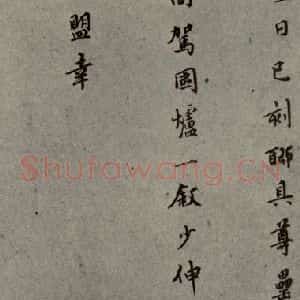 日已刻聊具尊罍
駕圍爐一敘少伸
盟幸
Shufawang.CN